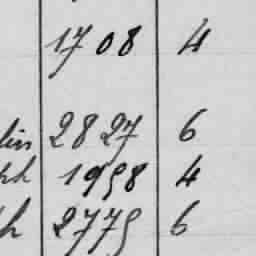 1708 4
lin 2827 6
ph 1958 4
h 2775 6